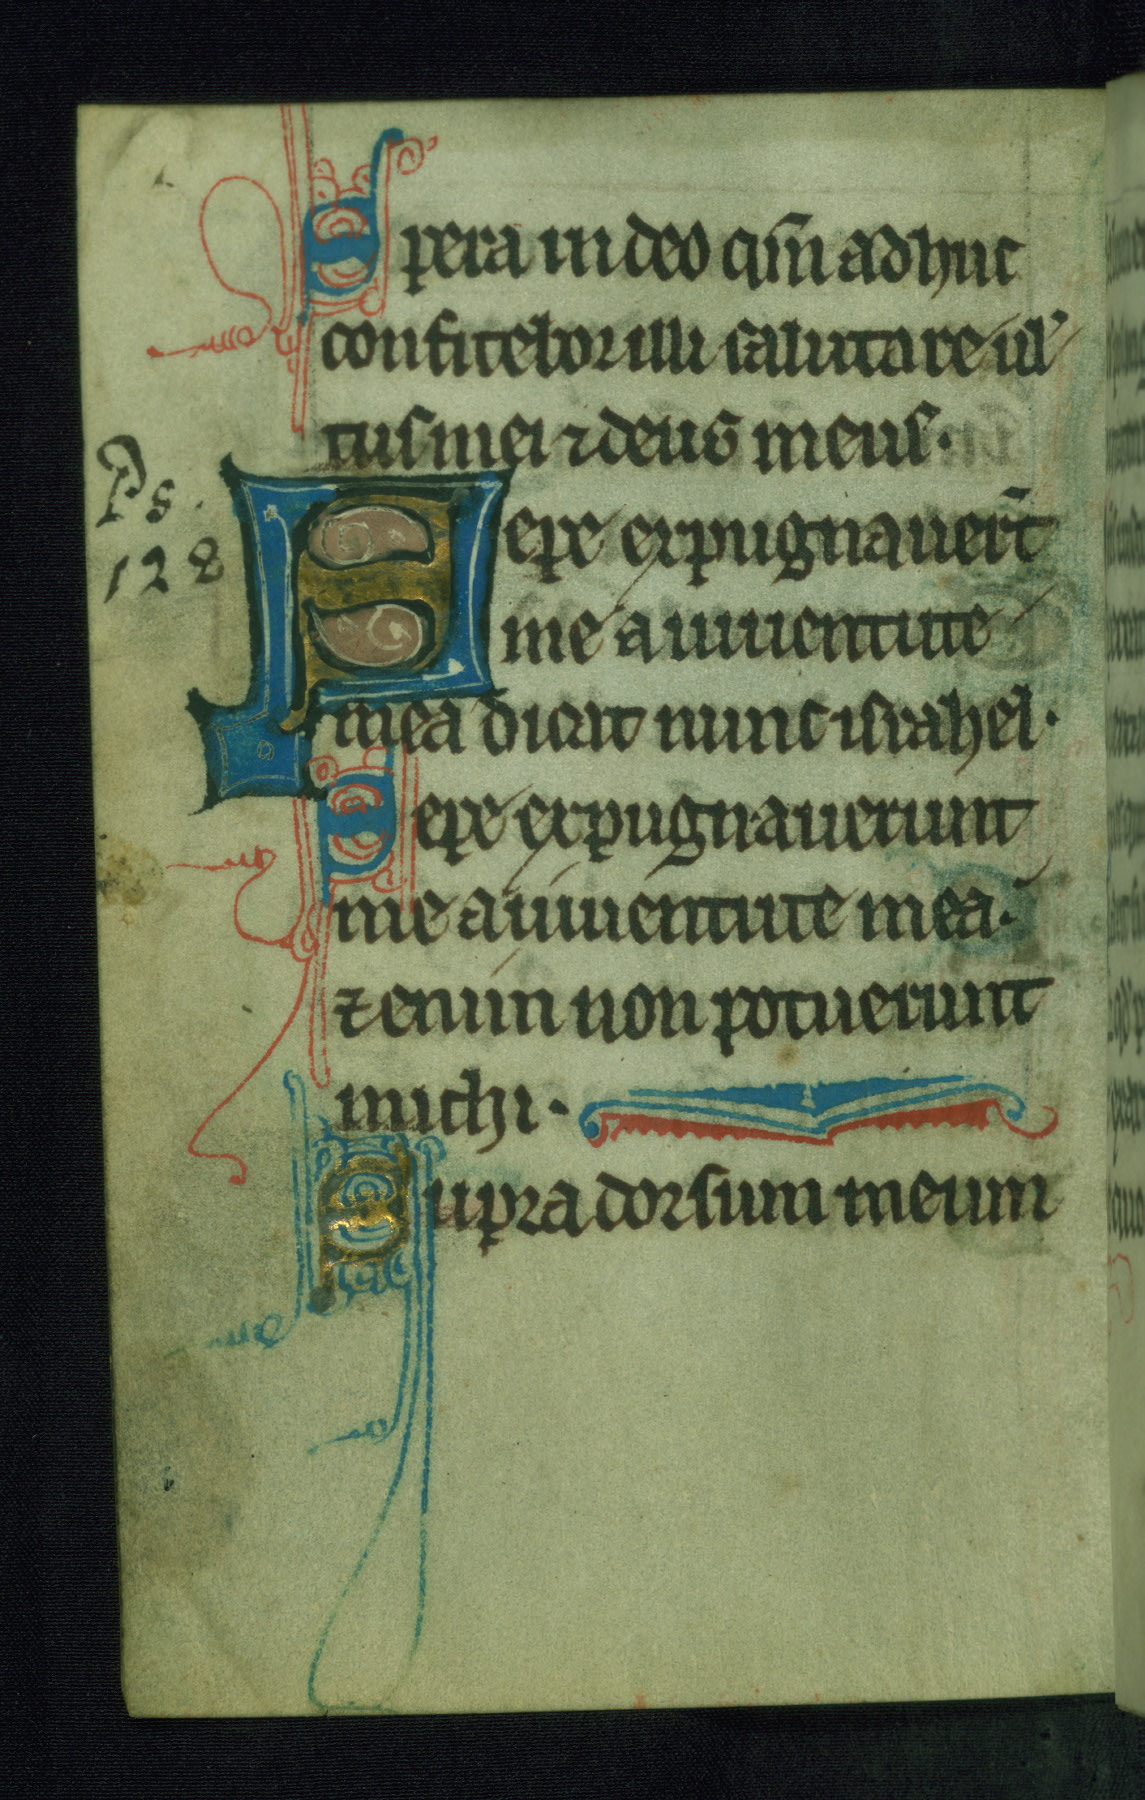 Spera in deo qm̄ adhuc
confitebor illi salutare uł
tus mei ⁊ deus meus.
Ps.
128
Sepe expugnauer̄t
me a iuuentute
mea dicat nunc israhel.
Sepe expugnauerunt
me a iuuentute mea.
⁊ enim non potuerunt
michi.
Supra dorsum meum